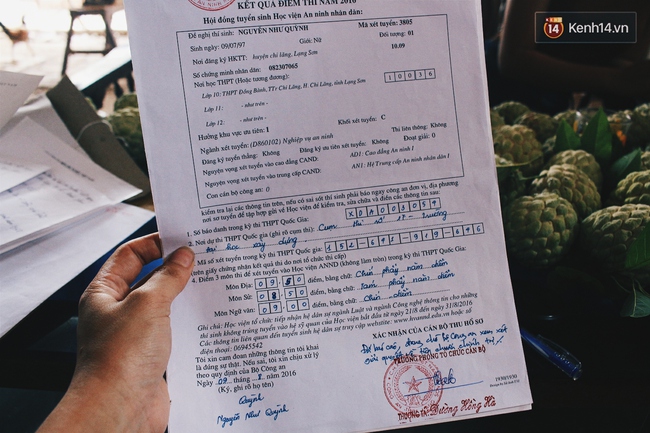 KẾT QUẢ ĐIỂM THI NĂM 2016
Hội đồng tuyển sinh Học viện An ninh nhân dân:
Đề nghị thí sinh: NGUYỄN NHƯ QUỲNH
Mã xét tuyển: 3805
Sinh ngày: 09/07/97
Giới: Nữ
Đối tượng: 01
Nơi đăng ký HKTT: huyện chi lăng, Lạng Sơn
10.09
Số chứng minh nhân dân: 082307065
Nơi học THPT (Hoặc tương đương):
10036
Lớp 10: THPT Đồng Bành, TTr Chi Lăng, H. Chi Lăng, tỉnh Lạng Sơn
Lớp 11: - như trên -
Lớp 12: - như trên -
Hưởng khu vực ưu tiên: 1
Khối xét tuyển: C
Ngành xét tuyển: (D860102) Nghiệp vụ an ninh
Thi liên thông: Không
Đăng ký tuyển thẳng: Không
Đăng ký ưu tiên xét tuyển: Không
Đoạt giải: 0
Nguyện vọng xét tuyển vào cao đẳng CAND:
AD1: Cao đẳng An ninh 1
Nguyện vọng xét tuyển vào trung cấp CAND:
AN1: Hệ Trung cấp An ninh nhân dân 1
Con cán bộ công an: 0
kiểm tra lại các thông tin trên, nếu có sai sót thí sinh phải báo ngay công an đơn vị, địa phương
nơi sơ tuyển để tập hợp gửi về Học viện để kiểm tra, sửa chữa và điền các thông tin sau:
1. Số báo danh trong kỳ thi THPT Quốc Gia:
XDA003059
2. Nơi dự thi THPT Quốc gia (ghi rõ cụm thi): Cụm thi số 17 - Trường
đại học xây dựng
3. Mã số xét tuyển trong kỳ thi THPT Quốc gia:
(trên giấy chứng nhận kết quả thi do nơi tổ chức thi cấp)
4. Điểm 3 môn thi để xét tuyển vào Học viện ANND (không làm tròn) trong kỳ thi THPT Quốc Gia:
Môn Địa: 09.50 điểm, bằng chữ: Chín phẩy năm điểm
Môn Sử: 08.50 điểm, bằng chữ: tám phẩy năm điểm
Môn Ngữ văn: 09.00 điểm, bằng chữ: Chín điểm
Ghi chú: Học viện tổ chức tiếp nhận hệ dân sự ngành Luật và ngành Công nghệ thông tin cho những
thí sinh không trúng tuyển vào hệ sỹ quan của Học viện bắt đầu từ ngày 21/8 đến ngày 31/8/2016
Các thông tin liên quan đến tuyển sinh hệ dân sự truy cập website: www.hvannd.edu.vn hoặc số
điện thoại: 06945542
Tôi xin cam đoan những thông tin tôi khai
là đúng sự thật. Nếu sai, tôi xin chịu xử lý
theo quy định của Bộ Công an
Ngày 09 tháng 8 năm 2016
(Ký, ghi rõ họ tên)
Quỳnh
Nguyễn Như Quỳnh
XÁC NHẬN CỦA CÁN BỘ THU HỒ SƠ
PHÒNG TỔ CHỨC CÁN BỘ
Dương Hồng Hà
14
Kenh14.vn